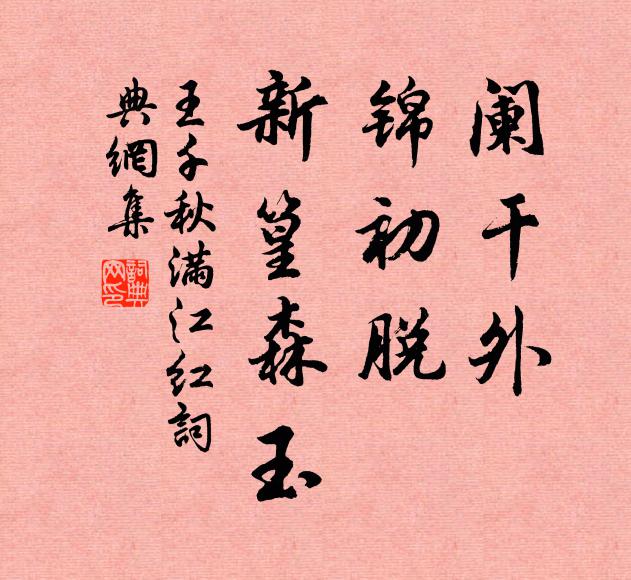 阑干外
锦初脱
新篁森玉
王千秋满江红词
典網集
詞典網印